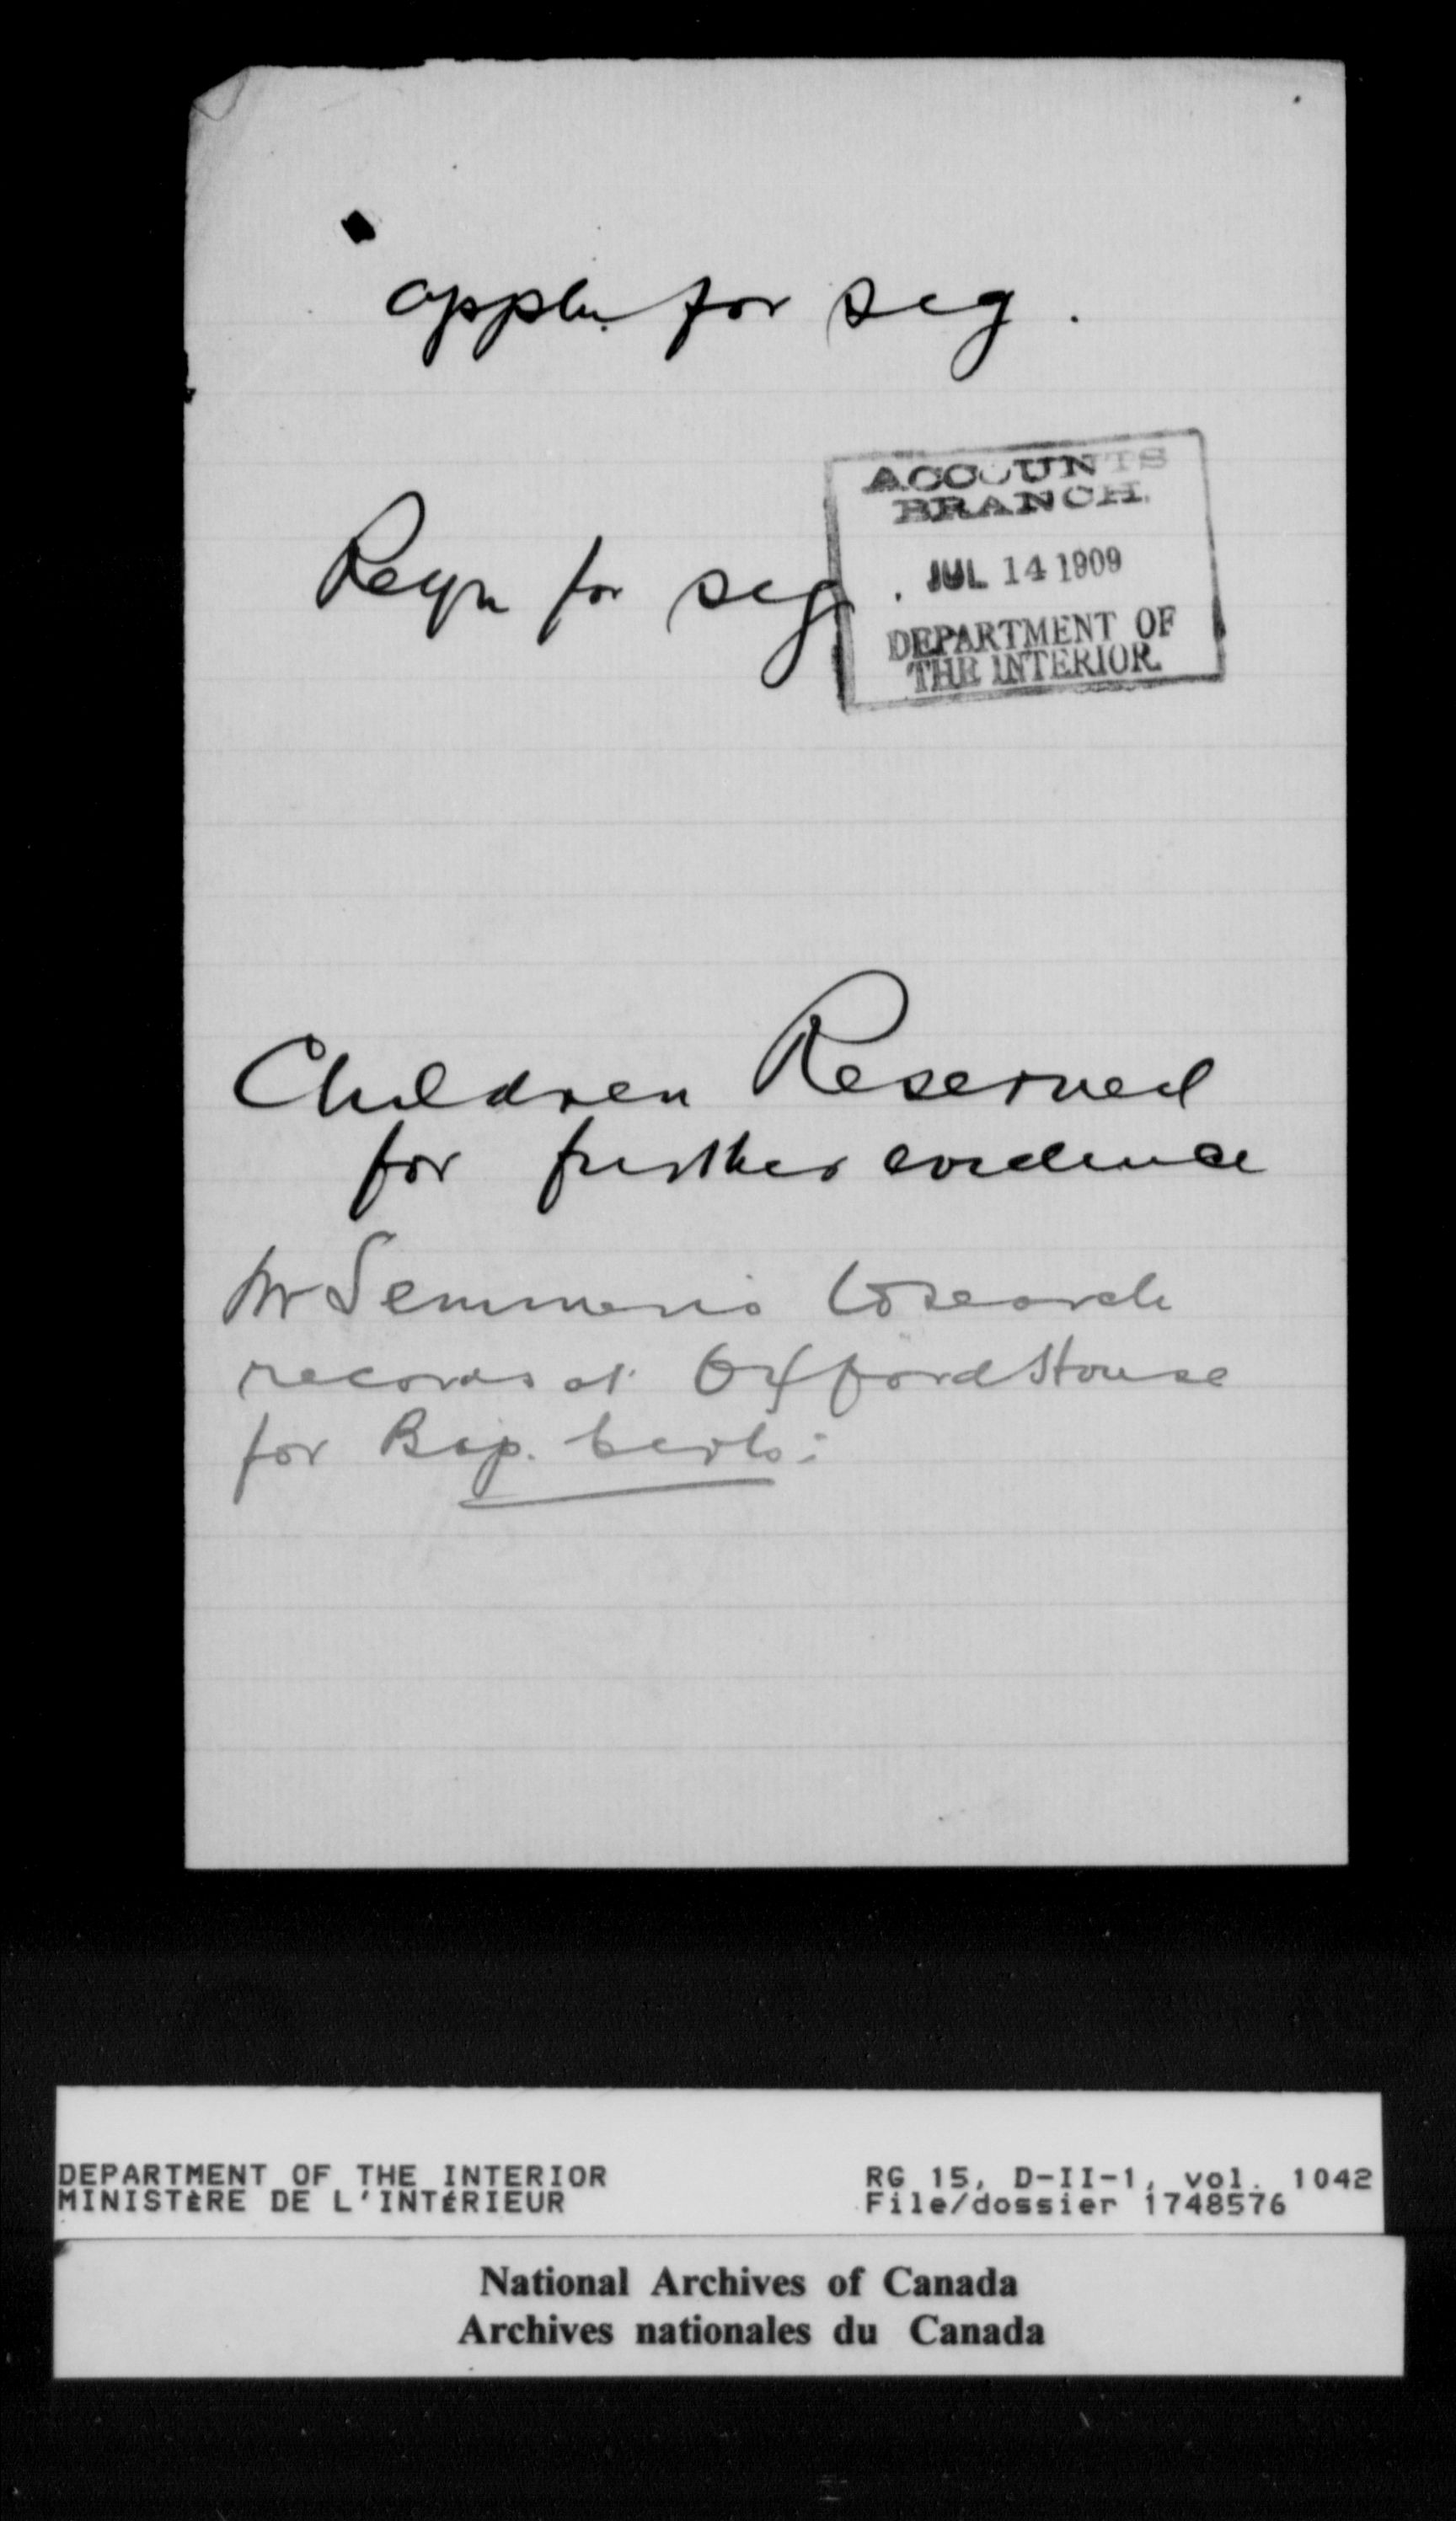 appln. for sig.
Reqn for sig
ACCOUNTS
BRANCH.
JUL 14 1909
DEPARTMENT OF
THE INTERIOR.
Children Reserved
for further evidence
Mr Semmens to search
records at Oxford House
for Bap. Certs:
DEPARTMENT OF THE INTERIOR
MINISTÈRE DE L'INTÉRIEUR
RG 15, D-II-1, vol. 1042
File/dossier 1748576
National Archives of Canada
Archives nationales du Canada